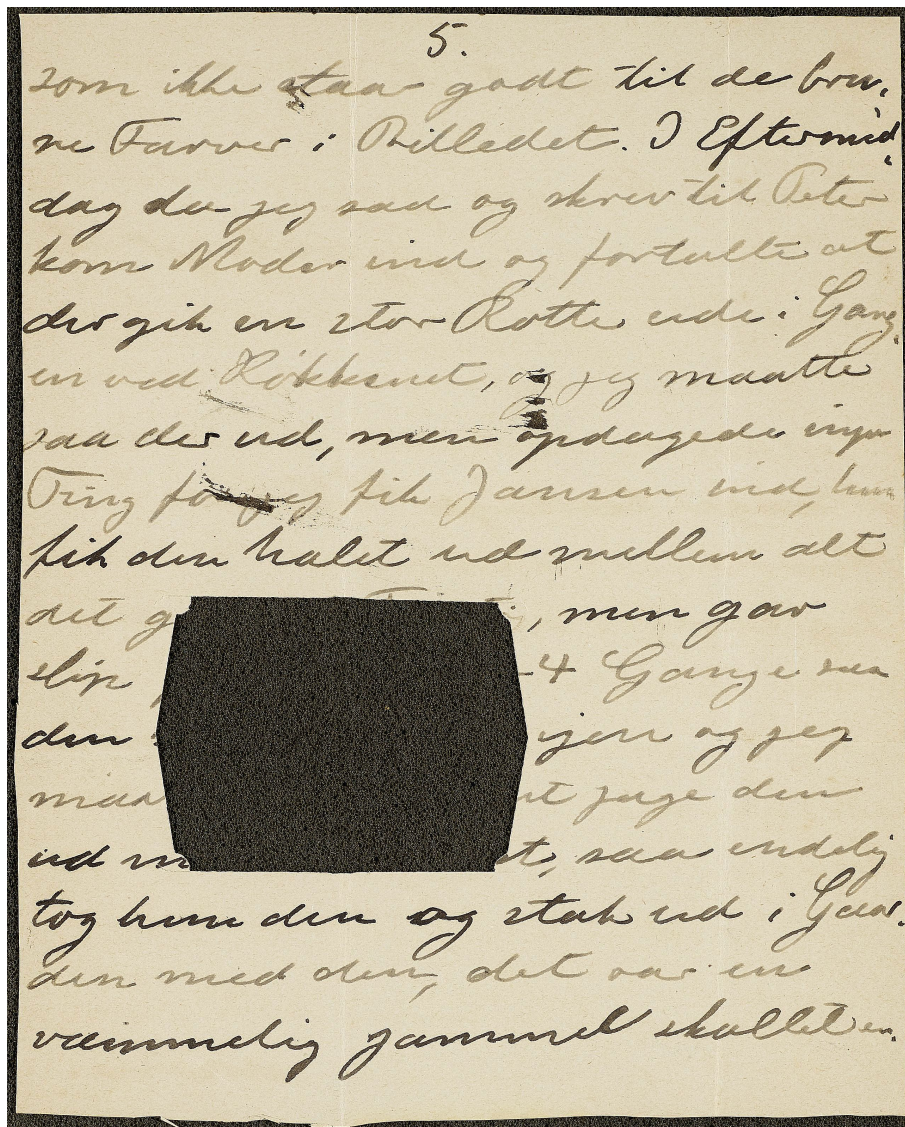 5.
som ikke staa godt til de bru-
ne Farver i Billedet. I Eftermid-
dag da jeg sad og skrev til Peter
kom Moder ind og fortalte at
der gik en stor Rotte ude i Gang-
en ved Køkkenet, og jeg maatte
saa der ud, men opdagede ingen
Ting før jeg fik Jansen ind, hun
fik den halet ud mellem alt
det g , men gav
slip -4 Gange saa
den igen og jeg
maa at jage den
ud m et, saa endelig
tog hun den og stak ud i Gaar-
den med den, det var en
væmmelig gammel skallet en.